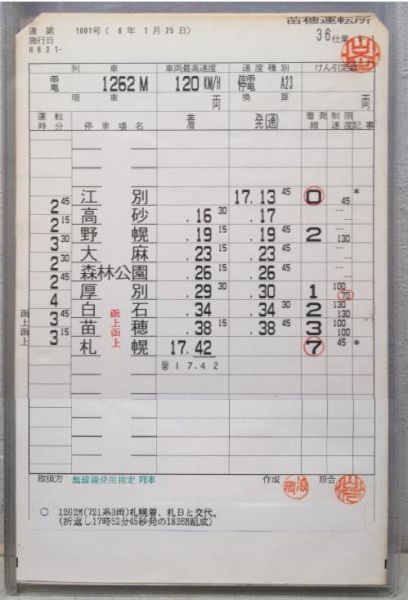 苗穂運転所
達第 1001号( 6年 1月25日)
施行日
H631-
36仕業
列車 車両最高速度 速度種別 けん引定数
電 1262M 120KM/H 停電 A23
現車 両 換算 両
運転時分 停車場名 着 発(通) 着発線 制限速度 記事
江別 17.13 45 0 45 *
2 45
高砂 .16 30 .17
2 15
野幌 .19 15 .19 45 2 130
3 30
大麻 .23 15 .23 45
2 30
森林公園 .26 15 .26 45
2 45
厚別 .29 30 .30 1 100 70
4
白石 .34 .34 30 2 130 130
函上 3 45 函上
苗穂 .38 15 .38 45 3 100 100
函上 3 15 函上
札幌 17.42 7 45 *
17.42
取扱方 無線機使用指定列車 作成 照合
○ 1262M(721系3両)札幌着、札Bと交代。
(折返し17時52分45秒発の1826M組成)